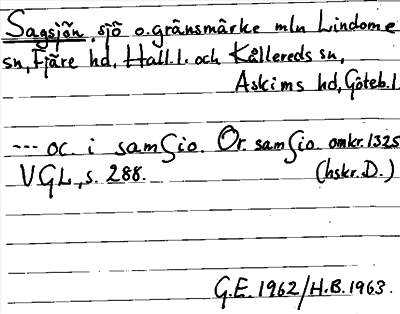 Sagsjön, sjö o. gränsmärke mln Lindome
sn, Fjäre hd, Hall.l. och Kållereds sn,
Askims hd, Göteb.l
--- oc. i samsio. Or. samsio. omkr. 1325
VGL, s. 288. (hskr. D.)
G.E. 1962/H.B. 1963.